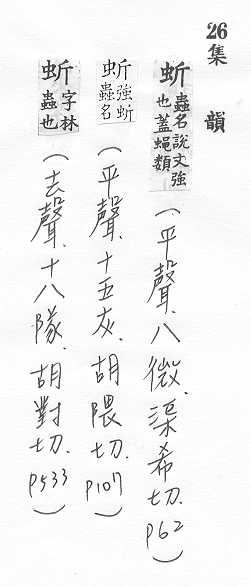 26集韻
蚚蟲名說文強也蓋蝿類(平聲.八微.渠希切.P62)
蚚強蚚蟲名(平聲.十五灰.胡隈切.P107)
蚚字林蟲也(去聲.十八隊.胡對切.P533)